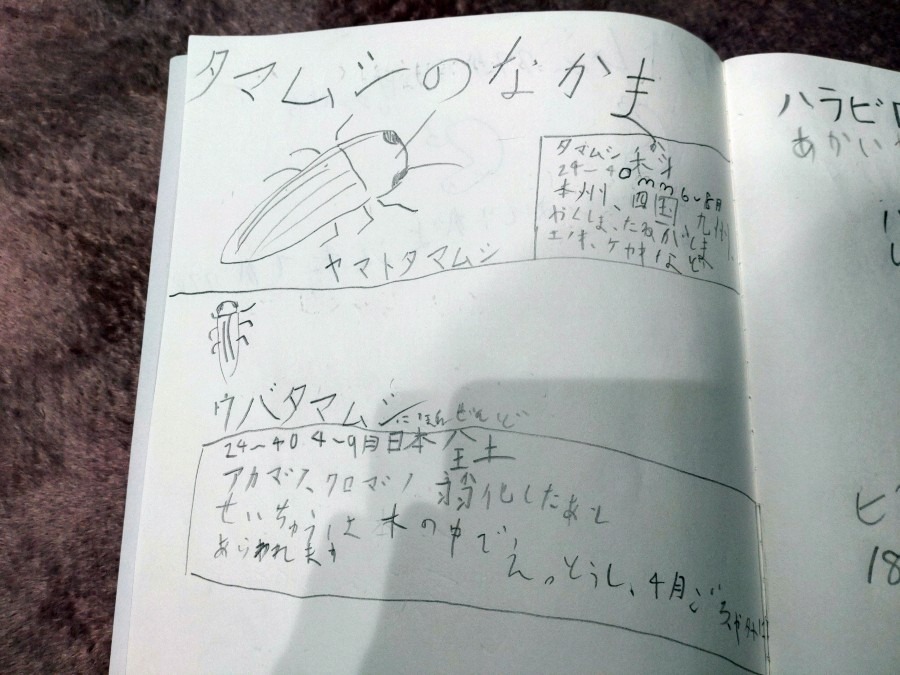 タマムシのなかま
タマムシ か科
24〜40mm 6〜8月
本州、四国 九州
やくしま、たねがしま
エノキ、ケヤキなど
ヤマトタマムシ
ウバタマムシ にほんぜんど
24〜40 4〜9月日本全土
アカマツ、クロマツ 羽化したあと
せいちゅうは木の中で、
えっとうし、4月ごろ
あらわれます
ハラビロ
あかい
18